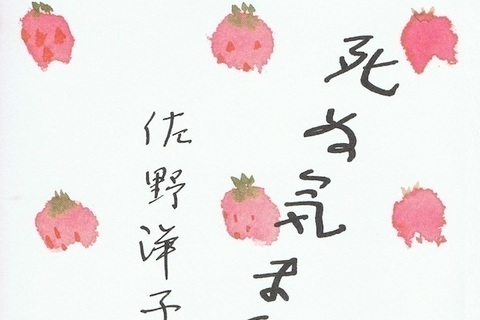 死ぬ気ま
佐野洋子